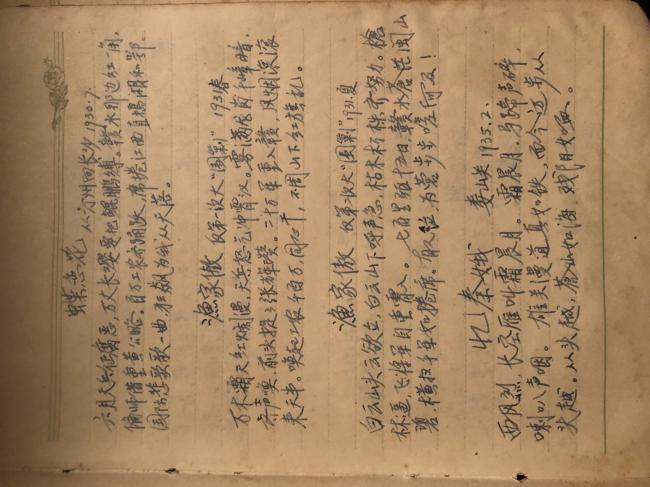 蝶恋花 从汀州向长沙 1930.7.
六月天兵征腐恶,万丈长缨要把鲲鹏缚。赣水那边红一角,
偏师借重黄公略。百万工农齐踊跃,席卷江西直捣湘和鄂。
国际悲歌歌一曲,狂飙为我从天落。
渔家傲 反第一次大"围剿" 1931春
万木霜天红烂漫,天兵怒气冲霄汉。雾满龙冈千嶂暗,
齐声唤,前头捉了张辉瓒。二十万军重入赣,风烟滚滚
来天半。唤起工农千百万,同心干,不周山下红旗乱。
渔家傲 反第二次大"围剿" 931.夏
白云山头云欲立,白云山下呼声急,枯木朽株齐努力。枪
林逼,飞将军自重霄入。七百里驱十五日,赣水苍茫闽山
碧,横扫千军如卷席。有人泣,为营步步嗟何及!
忆秦娥 娄山关 1935.2.
西风烈,长空雁叫霜晨月。霜晨月,马蹄声碎,
喇叭声咽。雄关漫道真如铁,而今迈步从
头越。从头越,苍山如海,残阳如血。